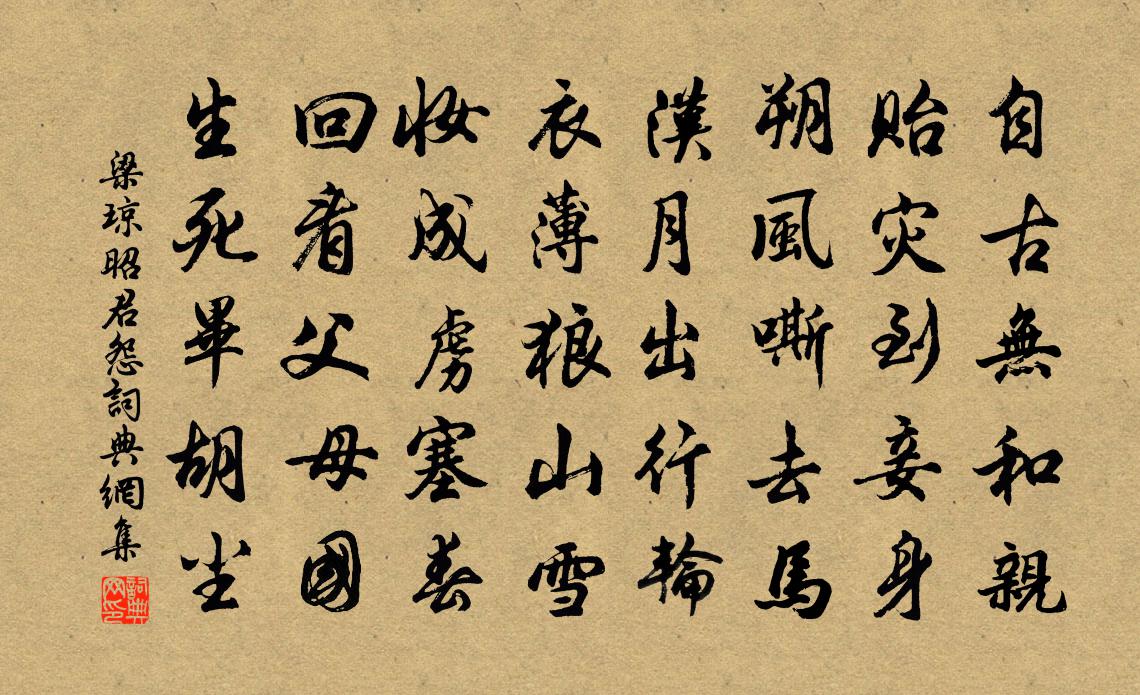 自古無和親
貽災到妾身
朔風嘶去馬
漢月出行輪
衣薄狼山雪
妝成虜塞春
回看父母國
生死畢胡塵
梁琼昭君怨詞典網集
詞典网印